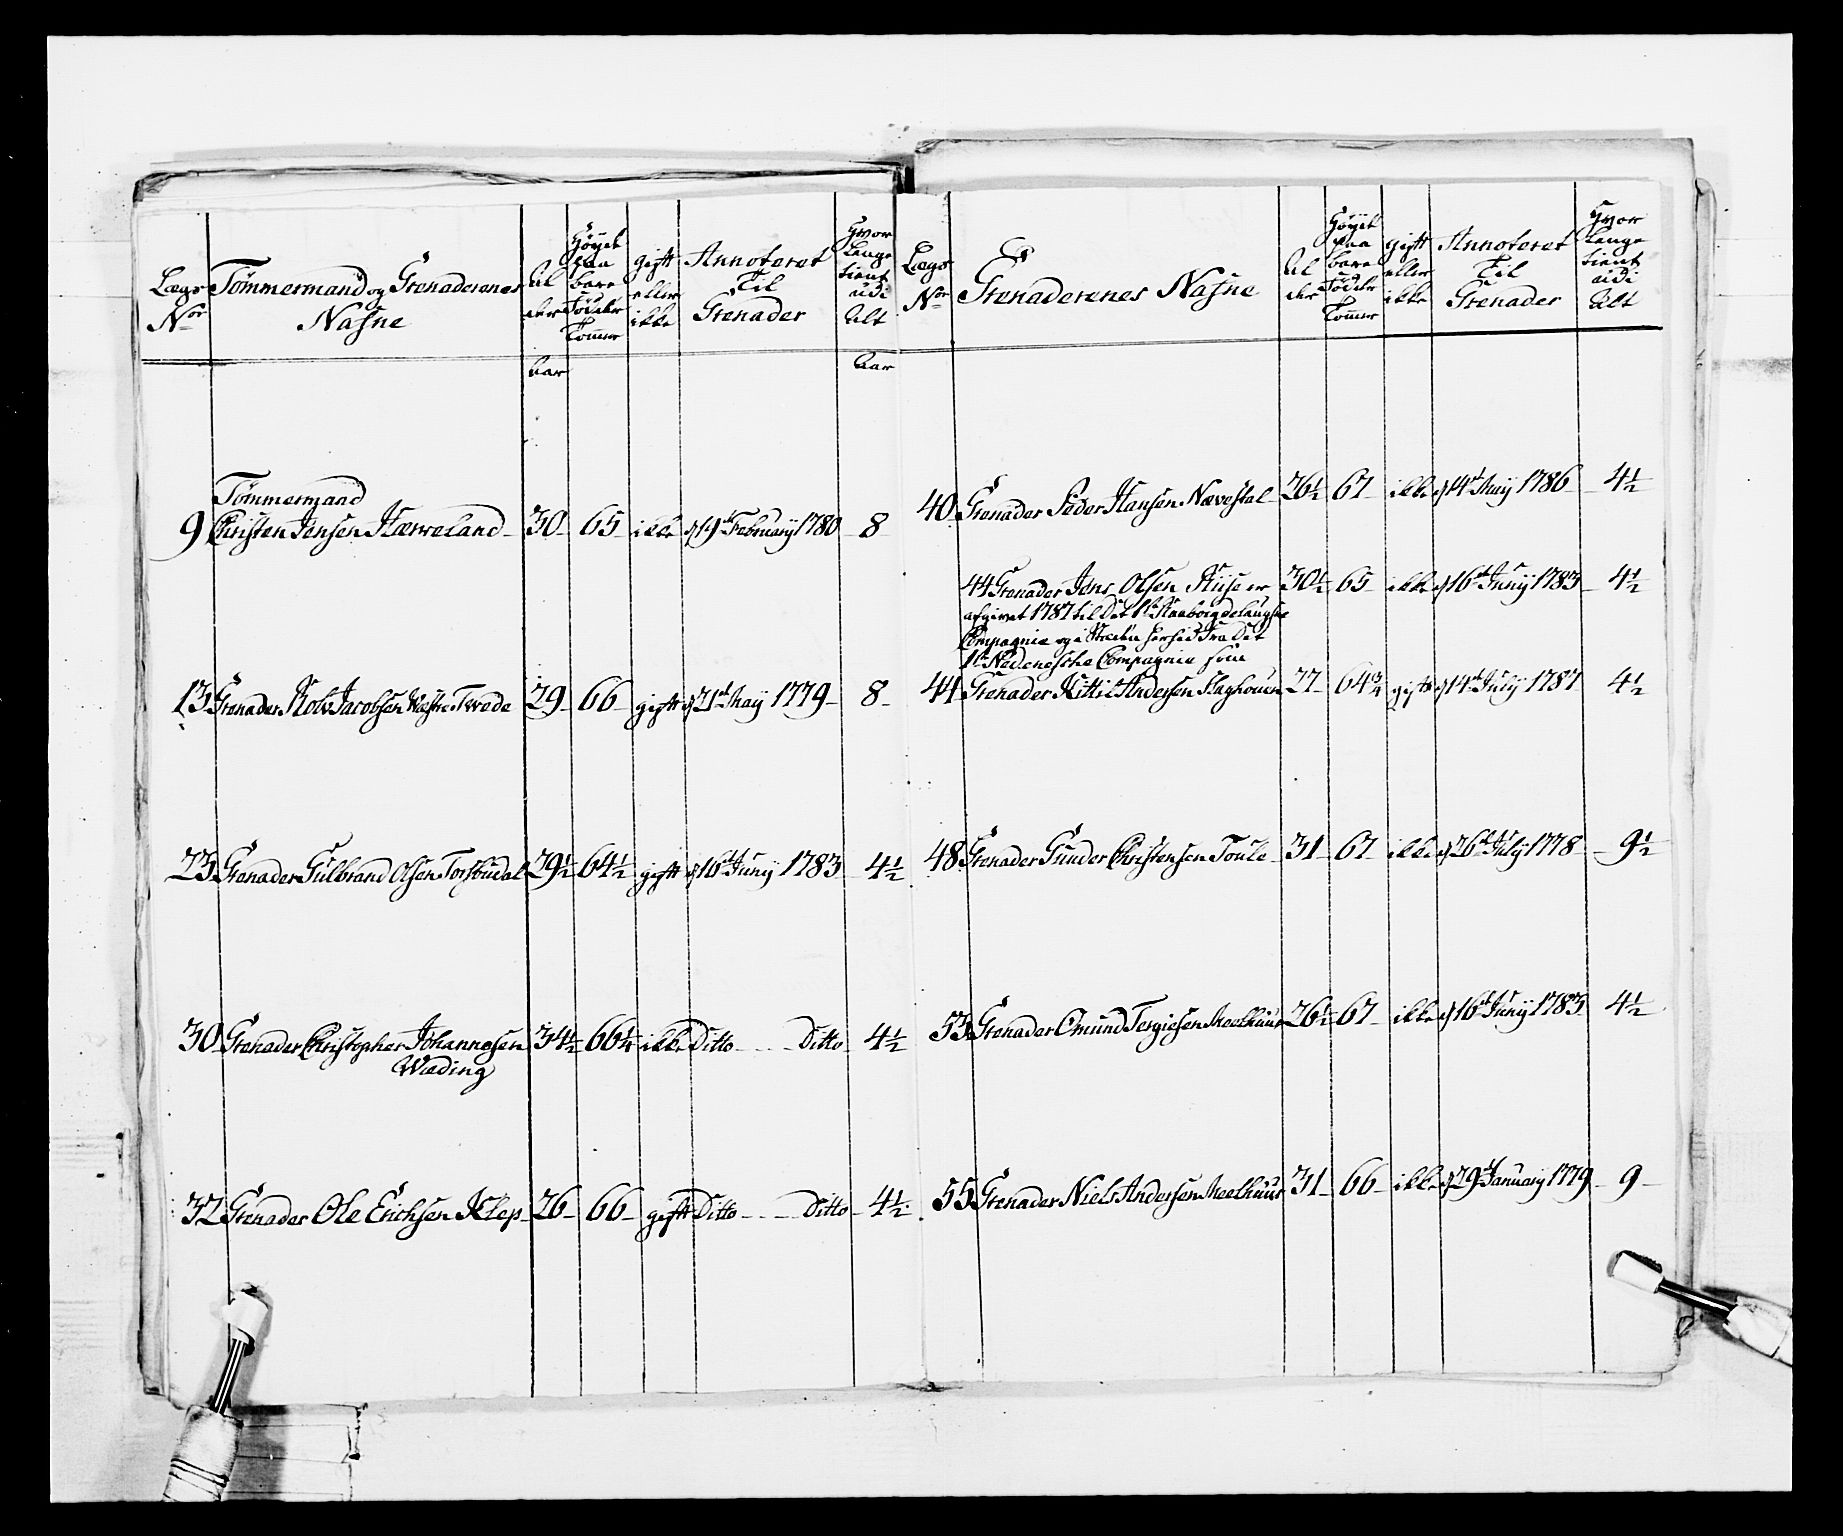 Lægs Nor
Tømmermand og Grenaderenes Nafne
Al der
Høyet paa bare Fødder Tommer
gift eller ikke
Annoteret Til Grenader
Hvor længe tient udi Alt
Aar
Aar
Tømmermand
9 Christen Jensen Hærreland 30 65 ikke d 19de February 1780 8
13 Grenader Rolv Jacobsen Westre Tvede 29 66 gift d 21de Maij 1779 8
23 Grenader Gulbrand Olsen Torsbudal 29½ 64½ gift d 16de Junij 1783 4½
30 Grenader Christopher Johannesen 34½ 66¼ ikke Ditto Ditto 4½
Wæding
32 Grenader Ole Erichsen Klep 26 66 gift Ditto Ditto 4½
Lægs Nor
Grenaderenes Nafne
Al der
Høyet paa bare Fødder Tommer
gift eller ikke
Annoteret Til Grenader
Hvor længe tient udi Alt
40 Grenader Peder Hansen Nævestal 26½ 67 ikke d 14de Maij 1786 4½
44 Grenader Jens Olsen Riise er 30½ 65 ikke d 16de Junij 1783 4½
afgivet 1787 til det 1te Raaborgdelaugske
Compagnie og i Stæden herhid fra det
1te Nedenesche Compagnie
44 Grenader Kittil Andersen Slaghouen 27 64¾ gift d 14de Julij 1787 4½
48 Grenader Gunder Christensen Toule 31 67 ikke d 26de Julij 1778 9½
53 Grenader Omund Tergiesen Moelhuus 26½ 67 ikke d 16de Junij 1783 4½
55 Grenader Niels Andersen Moelhuus 31 66 ikke d 29de January 1779 9